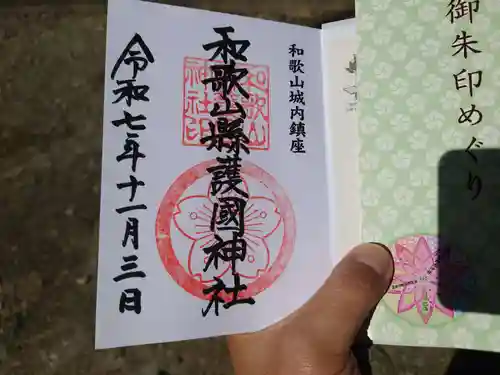 御朱印めぐり
和歌山城内鎮座
和歌山縣護國神社
和歌山
神社印
令和七年十一月三日